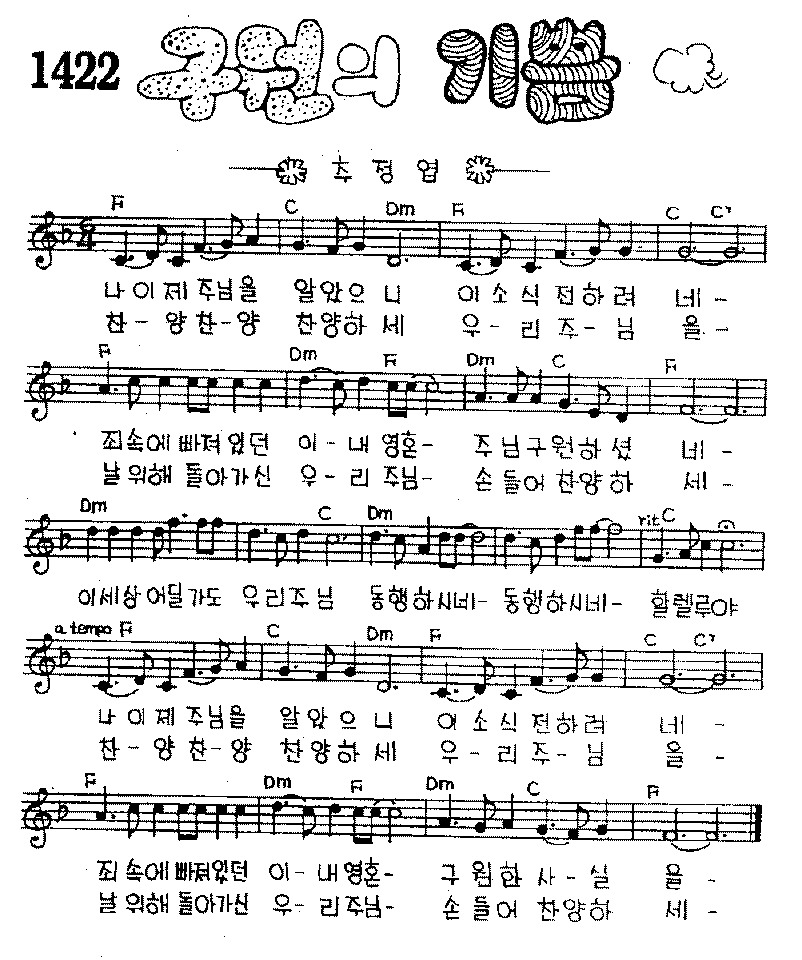 1422 구원의 기쁨
추정엽
F C Dm F C C7
나 이 제 주님을 알았으니 이 소 식 전하려 네-
찬-양 찬-양 찬양하세 우-리 주-님 을-
F Dm F Dm C F
죄속에 빠져있던 이-내 영혼- 주님구원하셨 네-
날 위해 돌아가신 우-리 주님- 손 들어 찬양하 세-
Dm C Dm rit C
이세상 어딜가도 우리주님 동행하시네- 동행하시네- 할렐루야
a tempo F C Dm F C C7
나 이 제 주님을 알았으니 이 소 식 전하려 네-
찬-양 찬-양 찬양하세 우-리 주-님 을-
F Dm F Dm C F
죄 속에 빠져있던 이-내 영혼- 구 원 한 사-실 을-
날 위해 돌아가신 우-리 주님- 손 들어 찬양하 세-